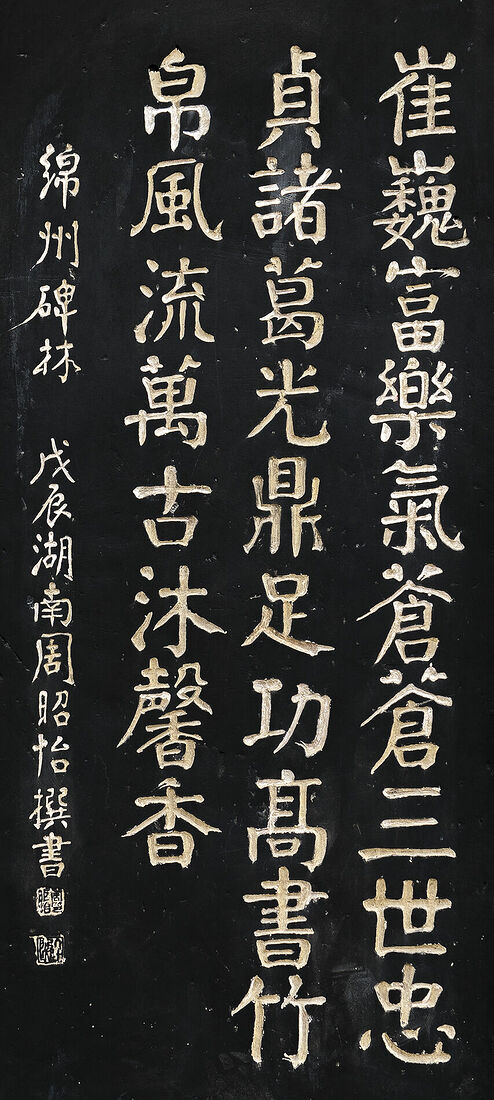 崔巍富樂氣蒼蒼三世忠
貞諸葛光鼎足功高書竹
帛風流萬古沐馨香
綿州碑林 戊辰湖南周昭怡撰書